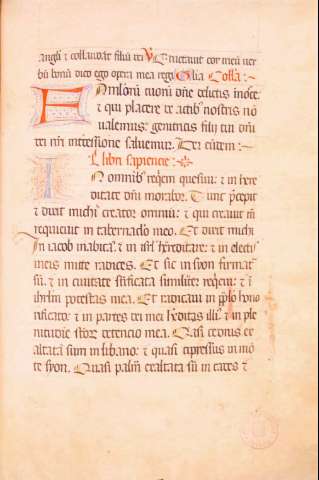 angli et collaudat filiu dei V Eructavit cor meu ver
bu bonu dico ego opera mea regi Glia Collã:
Amlorũ tuorũ dñe delictis ignosce
et qui placere de actib' nostris nõ
valemus: genitricis filii tui dñi
dei nri intercessione salvemur. Per eũdem:
L' libri sapiencie:
In omnib' reqem quesivi: et in here
ditate dñi morabor. Tunc precepit
et dixit michi creator omniũ: et qui creavit me
requievit in tabernaclo meo. Et dixit michi
In iacob inhabita: et in isrl hereditare: et in electis
meis mitte radices. Et sic in syon firmata
sũ. et in civitate sctificata similiter reqevi: et i
ihrlm potestas mea. Et radicavi in pplo hono
rificato: et in partes dei mei heditas illi': et in ple
nitudine sctor' detencio mea. Quasi cedrus ex
altata sum in libano: et quasi cipressus in mõ
te syon. Quasi palma exaltata sũ in cades et